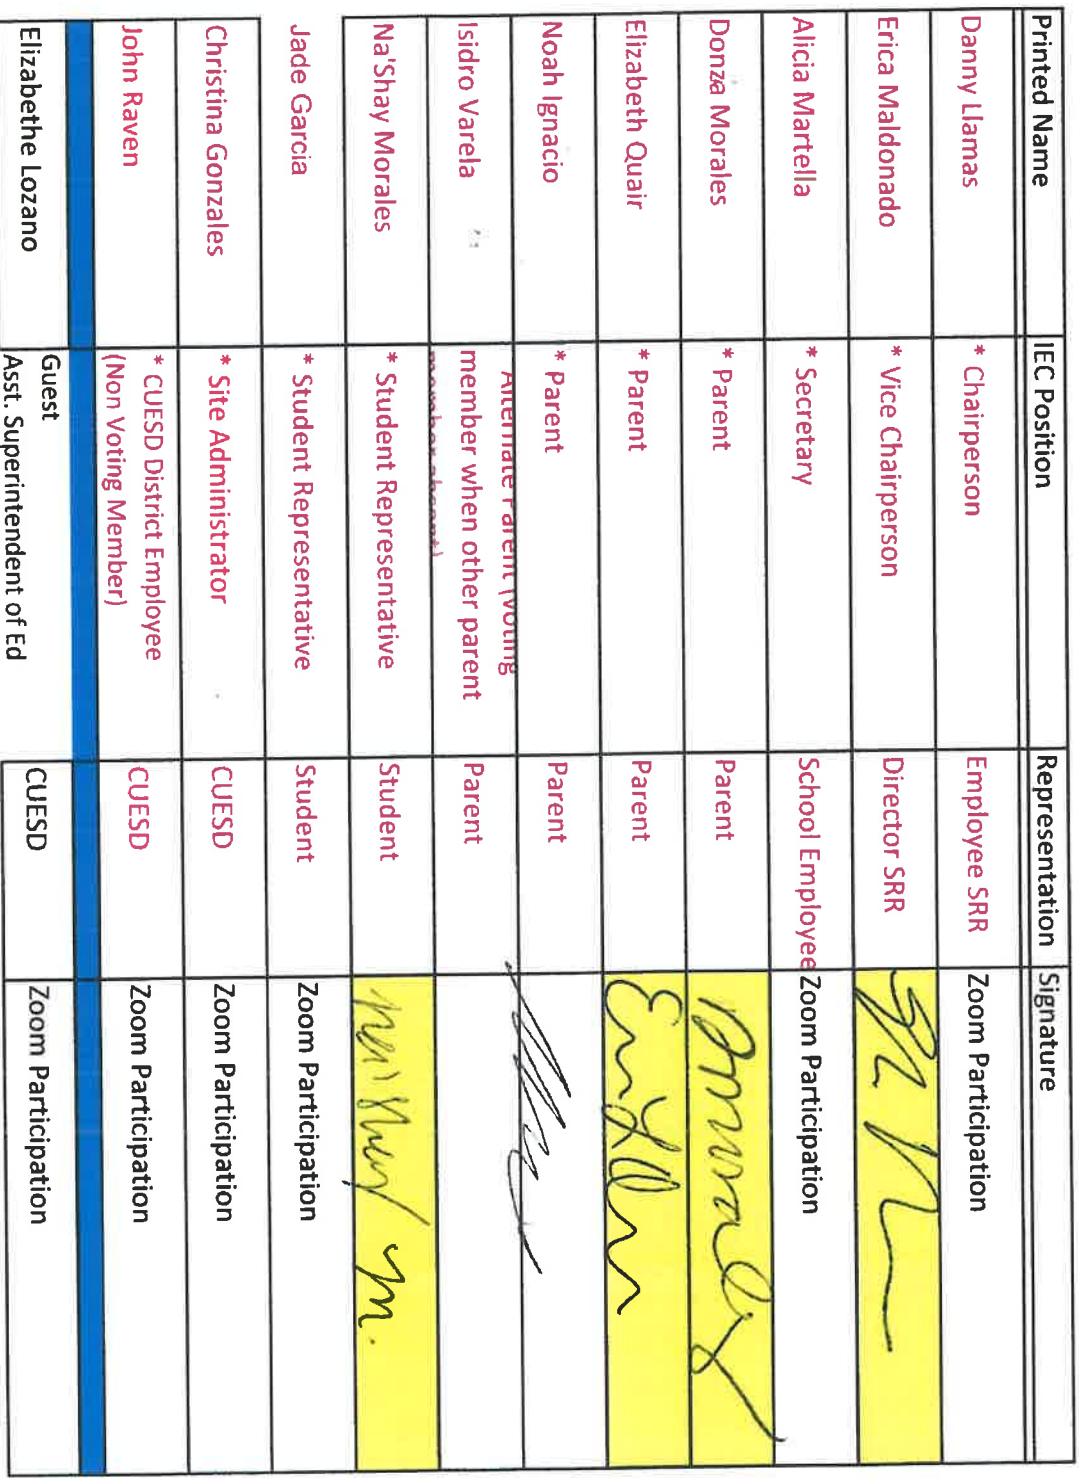 Printed Name IEC Position Representation Signature
Danny Llamas * Chairperson Employee SRR Zoom Participation
Erica Maldonado * Vice Chairperson Director SRR
Alicia Martella * Secretary School Employee Zoom Participation
Donza Morales * Parent Parent
Elizabeth Quair * Parent Parent
Noah Ignacio * Parent Parent
Alternate Parent (voting
Isidro Varela member when other parent Parent
member absent)
Na'Shay Morales * Student Representative Student Na'Shay M.
Jade Garcia * Student Representative Student Zoom Participation
Christina Gonzales * Site Administrator CUESD Zoom Participation
John Raven * CUESD District Employee CUESD Zoom Participation
(Non Voting Member)
Elizabethe Lozano Guest CUESD Zoom Participation
Asst. Superintendent of Ed